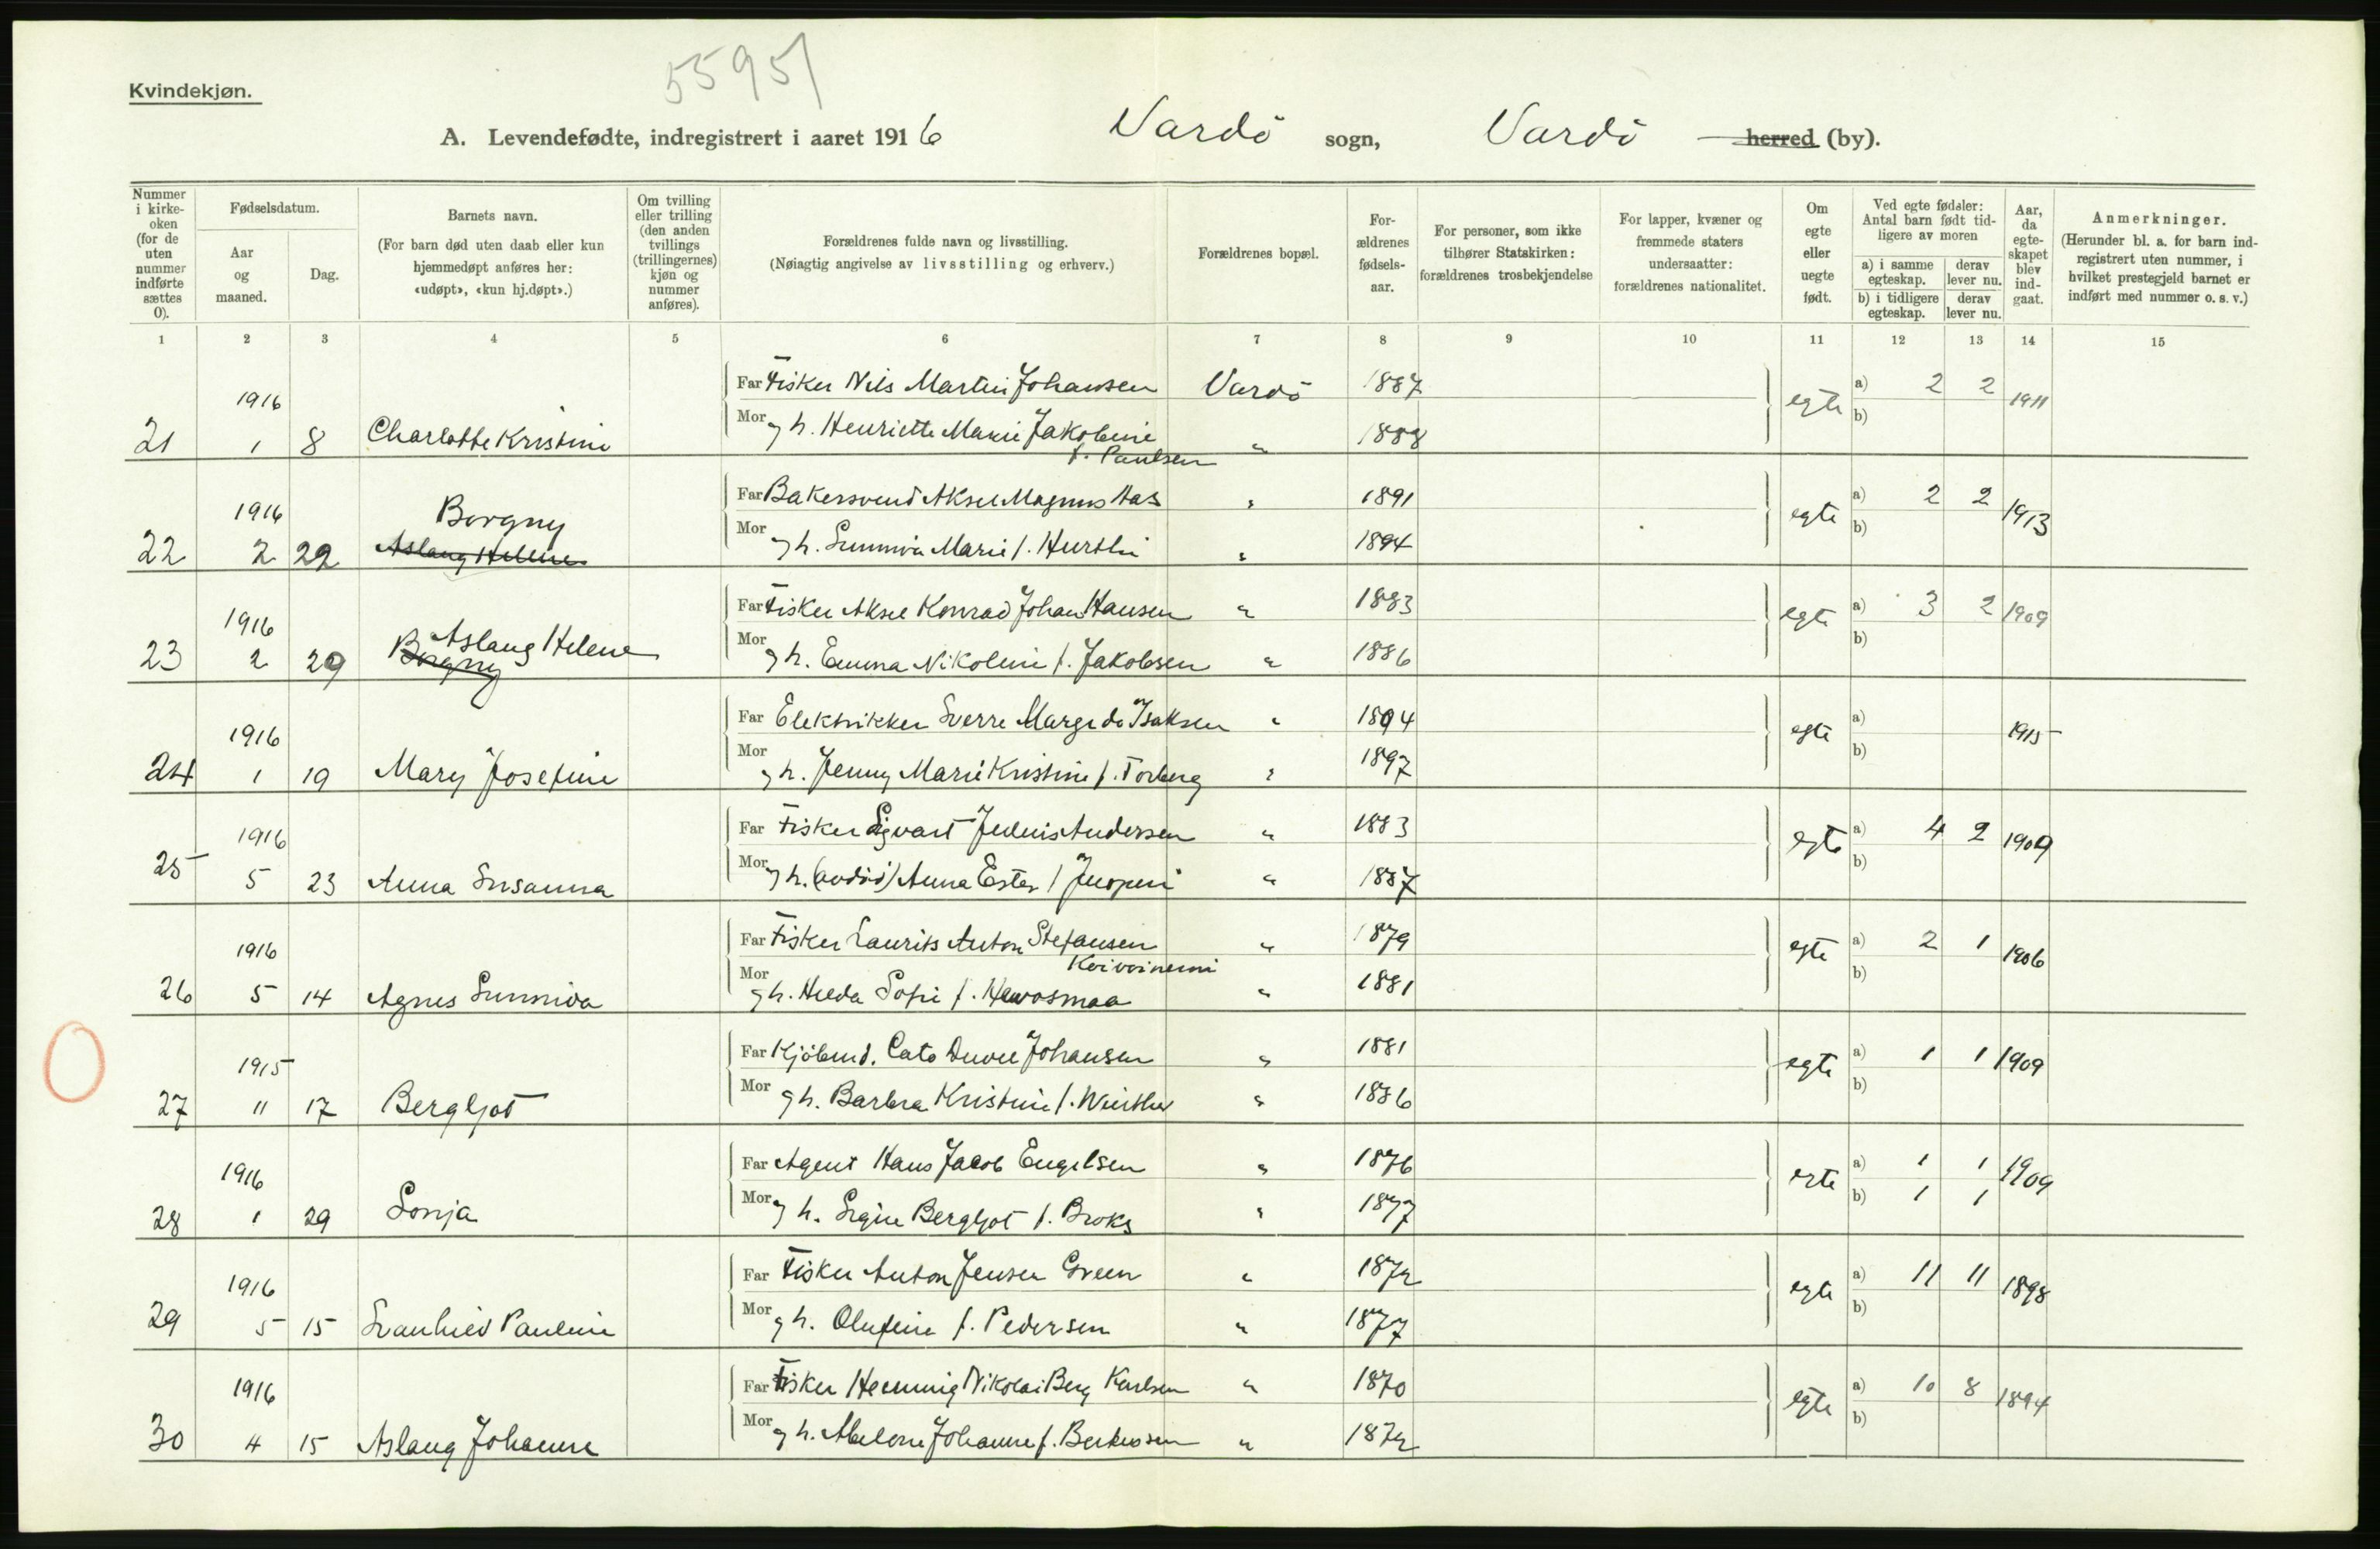 Kvindekjøn.
55951
A. Levendefødte, indregistrert i aaret 1916 Vardö sogn, Vardö herred (by).
Nummer i kirke-oken (for de uten nummer indførte sættes 0).
Fødselsdatum.
Aar og maaned.
Dag.
Barnets navn. (For barn død uten daab eller kun hjemmedøpt anføres her: «udøpt», «kun hj.døpt».)
Om tvilling eller trilling (den anden tvillings (trillingernes) kjøn og nummer anføres).
Forældrenes fulde navn og livsstilling. (Nøiagtig angivelse av livsstilling og erhverv.)
Forældrenes bopæl.
For-ældrenes fødsels-aar.
For personer, som ikke tilhører Statskirken: forældrenes trosbekjendelse
For lapper, kvæner og fremmede staters undersaatter: forældrenes nationalitet.
Om egte eller uegte født.
Ved egte fødsler: Antal barn født tid-ligere av moren
a) i samme egteskap.
derav lever nu.
b) i tidligere egteskap.
derav lever nu.
Aar, da egte-skapet blev ind-gaat.
Anmerkninger. (Herunder bl. a. for barn ind-registrert uten nummer, i hvilket prestegjeld barnet er indført med nummer o. s. v.)
1 2 3 4 5 6 7 8 9 10 11 12 13 14 15
1916 Far Fisker Nils Martin Johansen Vardö 1887 egte a) 2 2 1911
21 1 8 Charlotte Kristine Mor g h. Henriette Marie Jakobine f. Paulsen " 1888 b)
1916 Borgny Far Bakersvend Aksel Magnus Aas " 1891 egte a) 2 2 1913
22 2 22 Aslaug Helene Mor g h. Sunniva Marie f. " 1894 b)
1916 Aslaug Helene Far Fisker Aksel Konrad Johan Hansen " 1883 egte a) 3 2 1909
23 2 29 Borgny Mor g h. Emma Nikoline f. Jakobsen " 1886 b)
1916 Far Elektrikker Sverre Isaksen " 1894 egte a) 1915
24 1 19 Mary Josefine Mor g h. Jenny Marie Kristine f. Torberg " 1897 b)
1916 Far Fisker Sigvart Andersen " 1883 egte a) 4 2 1909
25 5 23 Anna Susanna Mor g h. Anna Ester f. " 1887 b)
1916 Far Fisker Laurits Anton Stefansen " 1879 egte a) 2 1 1906
Koivoinemi
26 5 14 Agnes Sunniva Mor g h. Hilda Sofie f. " 1881 b)
1915 Far Kjöbmd. Cato Johansen " 1881 egte a) 1 1 1909
27 11 17 Bergljot Mor g h. Barbra Kristine f. " 1886 b)
1916 Far Agent Hans Jacob Engelsen " 1876 egte a) 1 1 1909
28 1 29 Sonja Mor g h. Signe Bergljot f. Broks " 1877 b) 1 1
1916 Far Fisker Anton Jensen Green " 1872 egte a) 11 11 1898
29 5 15 Svanhild Pauline Mor g h. Olufine f. Pedersen " 1877 b)
1916 Far Fisker Henning Nikolai Berg Karlsen " 1870 egte a) 10 8 1894
30 4 15 Aslaug Johanne Mor g h. Abelone Johanne f. " 1872 b)